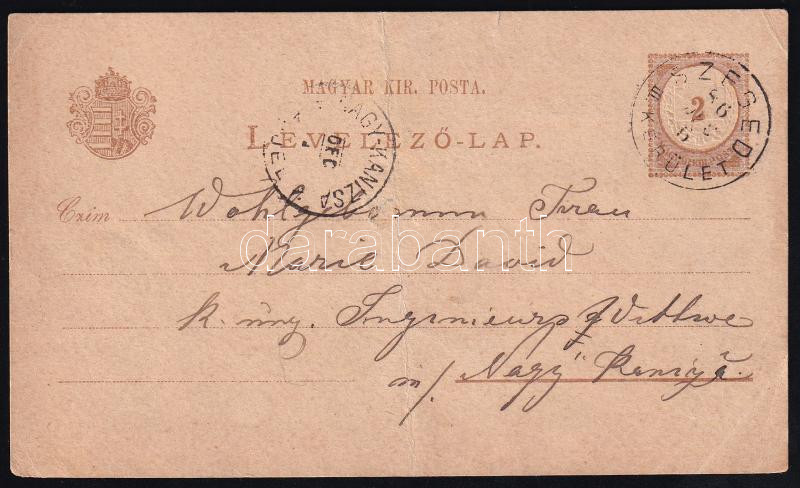 MAGYAR KIR. POSTA.
LEVELEZŐ-LAP.
2
SZEGED
KERÜLET
NAGY-KANIZSA
DEC
Czim Wohlgebornen Frau
Marie David
k. ung. Ingenieurs Wittwe
in/ Nagy Kaniza.
darabanth